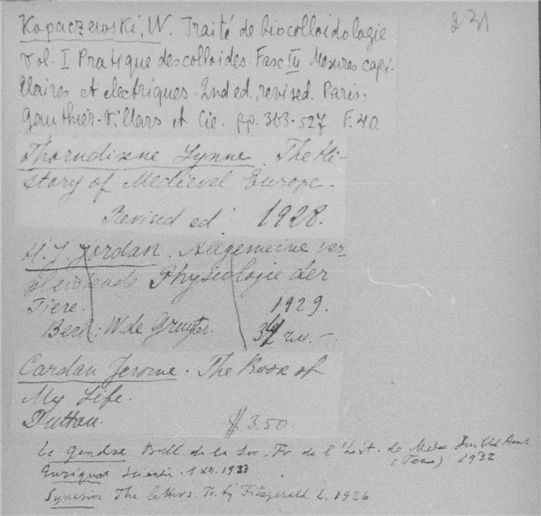 231
Kopaczewski, W. Traité de biocolloidologie
Vol. I Pratique des colloides. Fasc III Mesures capi-
llaires et electriques. 2nd ed, revised. Paris.
Gauthier-Villars et Cie. pp. 363-527 F. 40.
Thorndixne Lynne. The Hi-
story of Medieval Europe.
Revind ed 1928.
H. J. Jordan. Allgemeine ver-
gleichende Physiologie der
Tiere. 1929.
Berl: W. de Gruyter.
Cardan Jerome. The Book of
My Life.
Dutton. $3.50.
Le Gendre Bull. de la Soc. Fr. de l'Hist. de Med.
1932
Synesius The letters. Tr. by Fitzgerald L. 1926